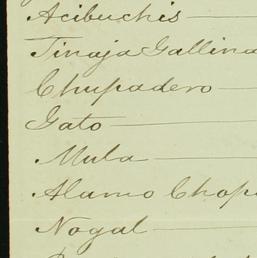 Acibuchis
Tinaja Gallina
Chupadero
Gato
Mula
Alamo Chapo
Nogal